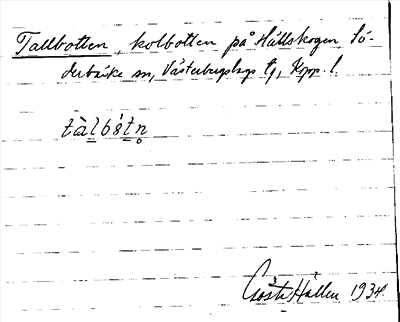 Tallbotten, kolbotten på Hällskogen Sö-
derbärke sn, Västerbergslags tg, Kopp. l.
tàlbót̥n̥
Gösta Hallen 1934.